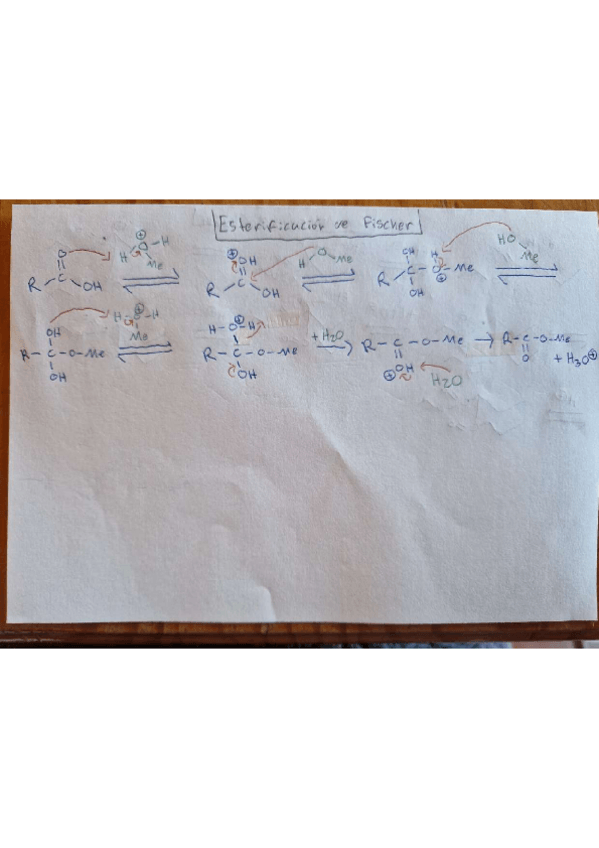 Esterificación de Fischer
O ⊕ H-O-H Me ⊕ OH H O Me OH H HO Me
R C OH R C OH R-C-O-Me ⊕ OH
OH H-O-H ⊕ Me H-O-H ⊕ + H2O
R-C-O-Me R-C-O-Me R-C-O-Me → R-C-O-Me
OH OH ⊕ OH H2O O + H3O⊕